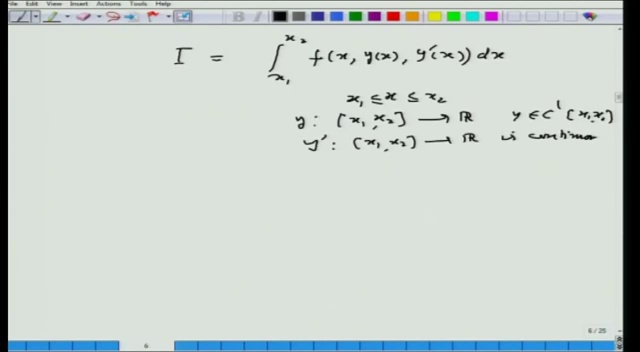 File Edit View Insert Actions Tools Help
I = ∫_{x₁}^{x₂} f(x, y(x), y'(x)) dx
x₁ ≤ x ≤ x₂
y : [x₁, x₂] → ℝ y ∈ C¹ [x₁, x₂]
y' : [x₁, x₂] → ℝ is continuous
6 / 25
6